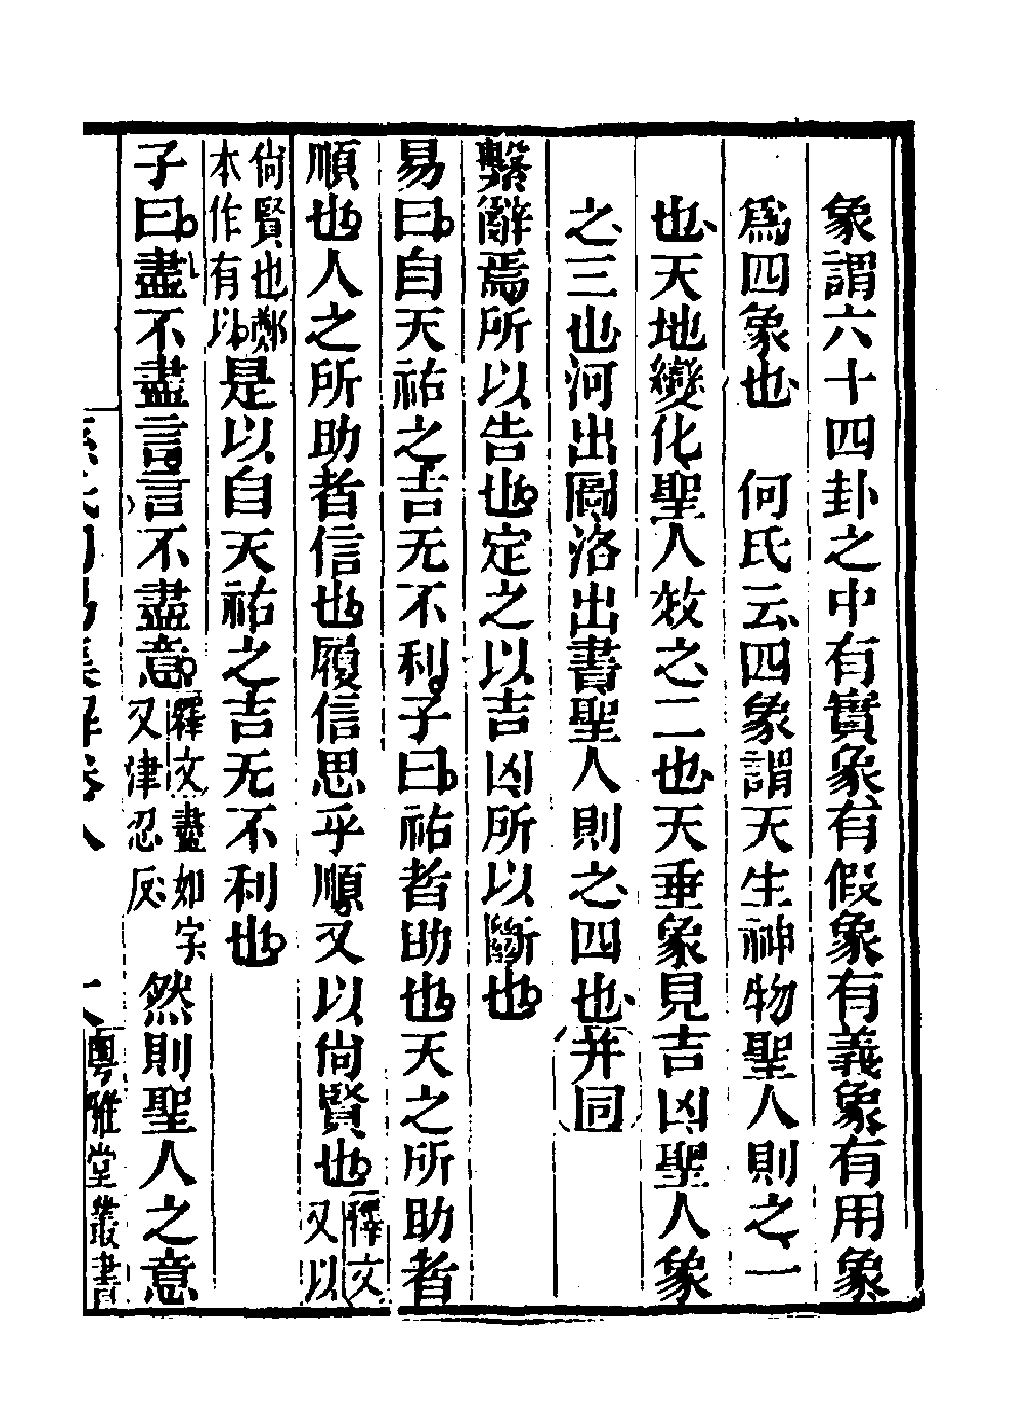 象謂六十四卦之中有實象有假象有義象有用象
爲四象也　何氏云四象謂天生神物聖人則之一
也天地變化聖人效之二也天垂象見吉凶聖人象
之三也河出圖洛出書聖人則之四也并同
繫辭焉所以告也定之以吉凶所以斷也
易曰自天祐之吉无不利子曰祐者助也天之所助者
順也人之所助者信也履信思乎順又以尙賢也釋文又以
尙賢也鄭本作有以是以自天祐之吉无不利也
子曰書不盡言言不盡意釋文盡如字又津忍反　然則聖人之意
孫氏周易集解卷八　粵雅堂叢書